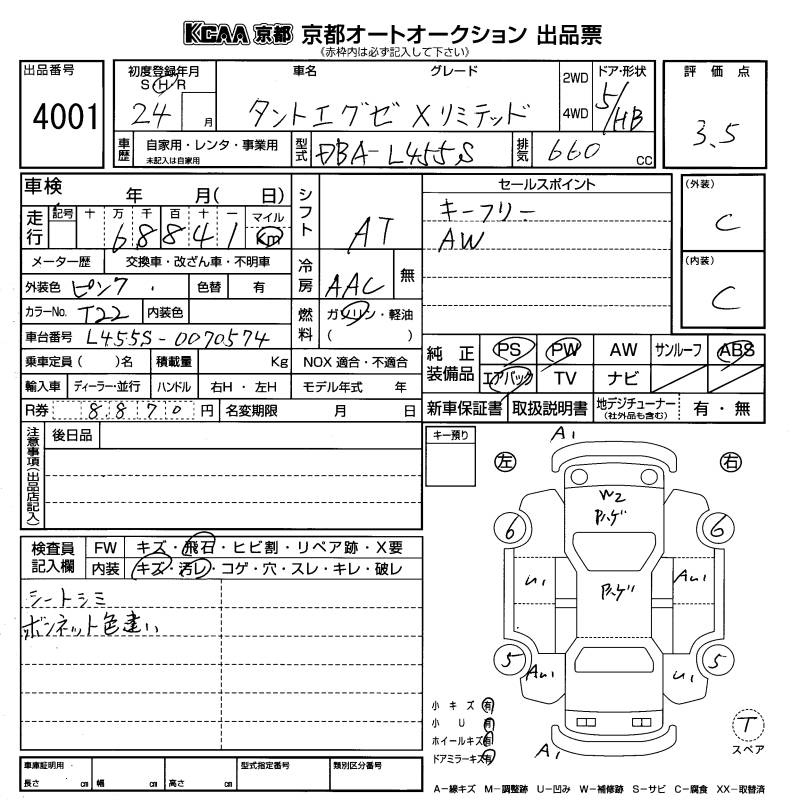 KCAA 京都 京都オートオークション 出品票
(赤枠内は必ず記入して下さい)
出品番号
4001
初度登録年月
S H R
24 月
車名 グレード
タントエグゼ Xリミテッド
2WD
4WD
ドア・形状
5/HB
評価点
3.5
車歴
自家用・レンタ・事業用
未記入は自家用
型式
DBA-L455S
排気
660 CC
車検 年 月( 日)
走行
記号 十 万 千 百 十 一 マイル
68841 Km
メーター歴 交換車・改ざん車・不明車
外装色 ピンク 色替 有
カラーNo. T22 内装色
車台番号 L455S-0070574
乗車定員( )名 積載量 Kg
輸入車 ディーラー・並行 ハンドル 右H・左H
R券 8870 円 名変期限 月 日
シフト
AT
冷房
AAC 無
燃料
ガソリン・軽油
( )
NOX 適合・不適合
モデル年式 年
セールスポイント
キーフリー
AW
(外装)
C
(内装)
C
純正装備品
PS PW AW サンルーフ ABS
エアバック TV ナビ
新車保証書 取扱説明書 地デジチューナー
(社外品も含む)
有・無
注意事項(出品店記入)
後日品
キー預り
検査員記入欄
FW キズ・飛石・ヒビ割・リペア跡・X要
内装 キズ・汚レ・コゲ・穴・スレ・キレ・破レ
シートシミ
ボンネット色違い
A1
左 右
W2
ハゲ
6 6
U1 ハゲ AU1
5 5
AU1 U1
A1
小キズ 有
小U 有
ホイールキズ 有
ドアミラーキズ 有
T
スペア
車庫証明用
長さ cm 幅 cm 高さ cm
型式指定番号
類別区分番号
A−線キズ M−調整跡 U−凹み W−補修跡 S−サビ C−腐食 XX−取替済